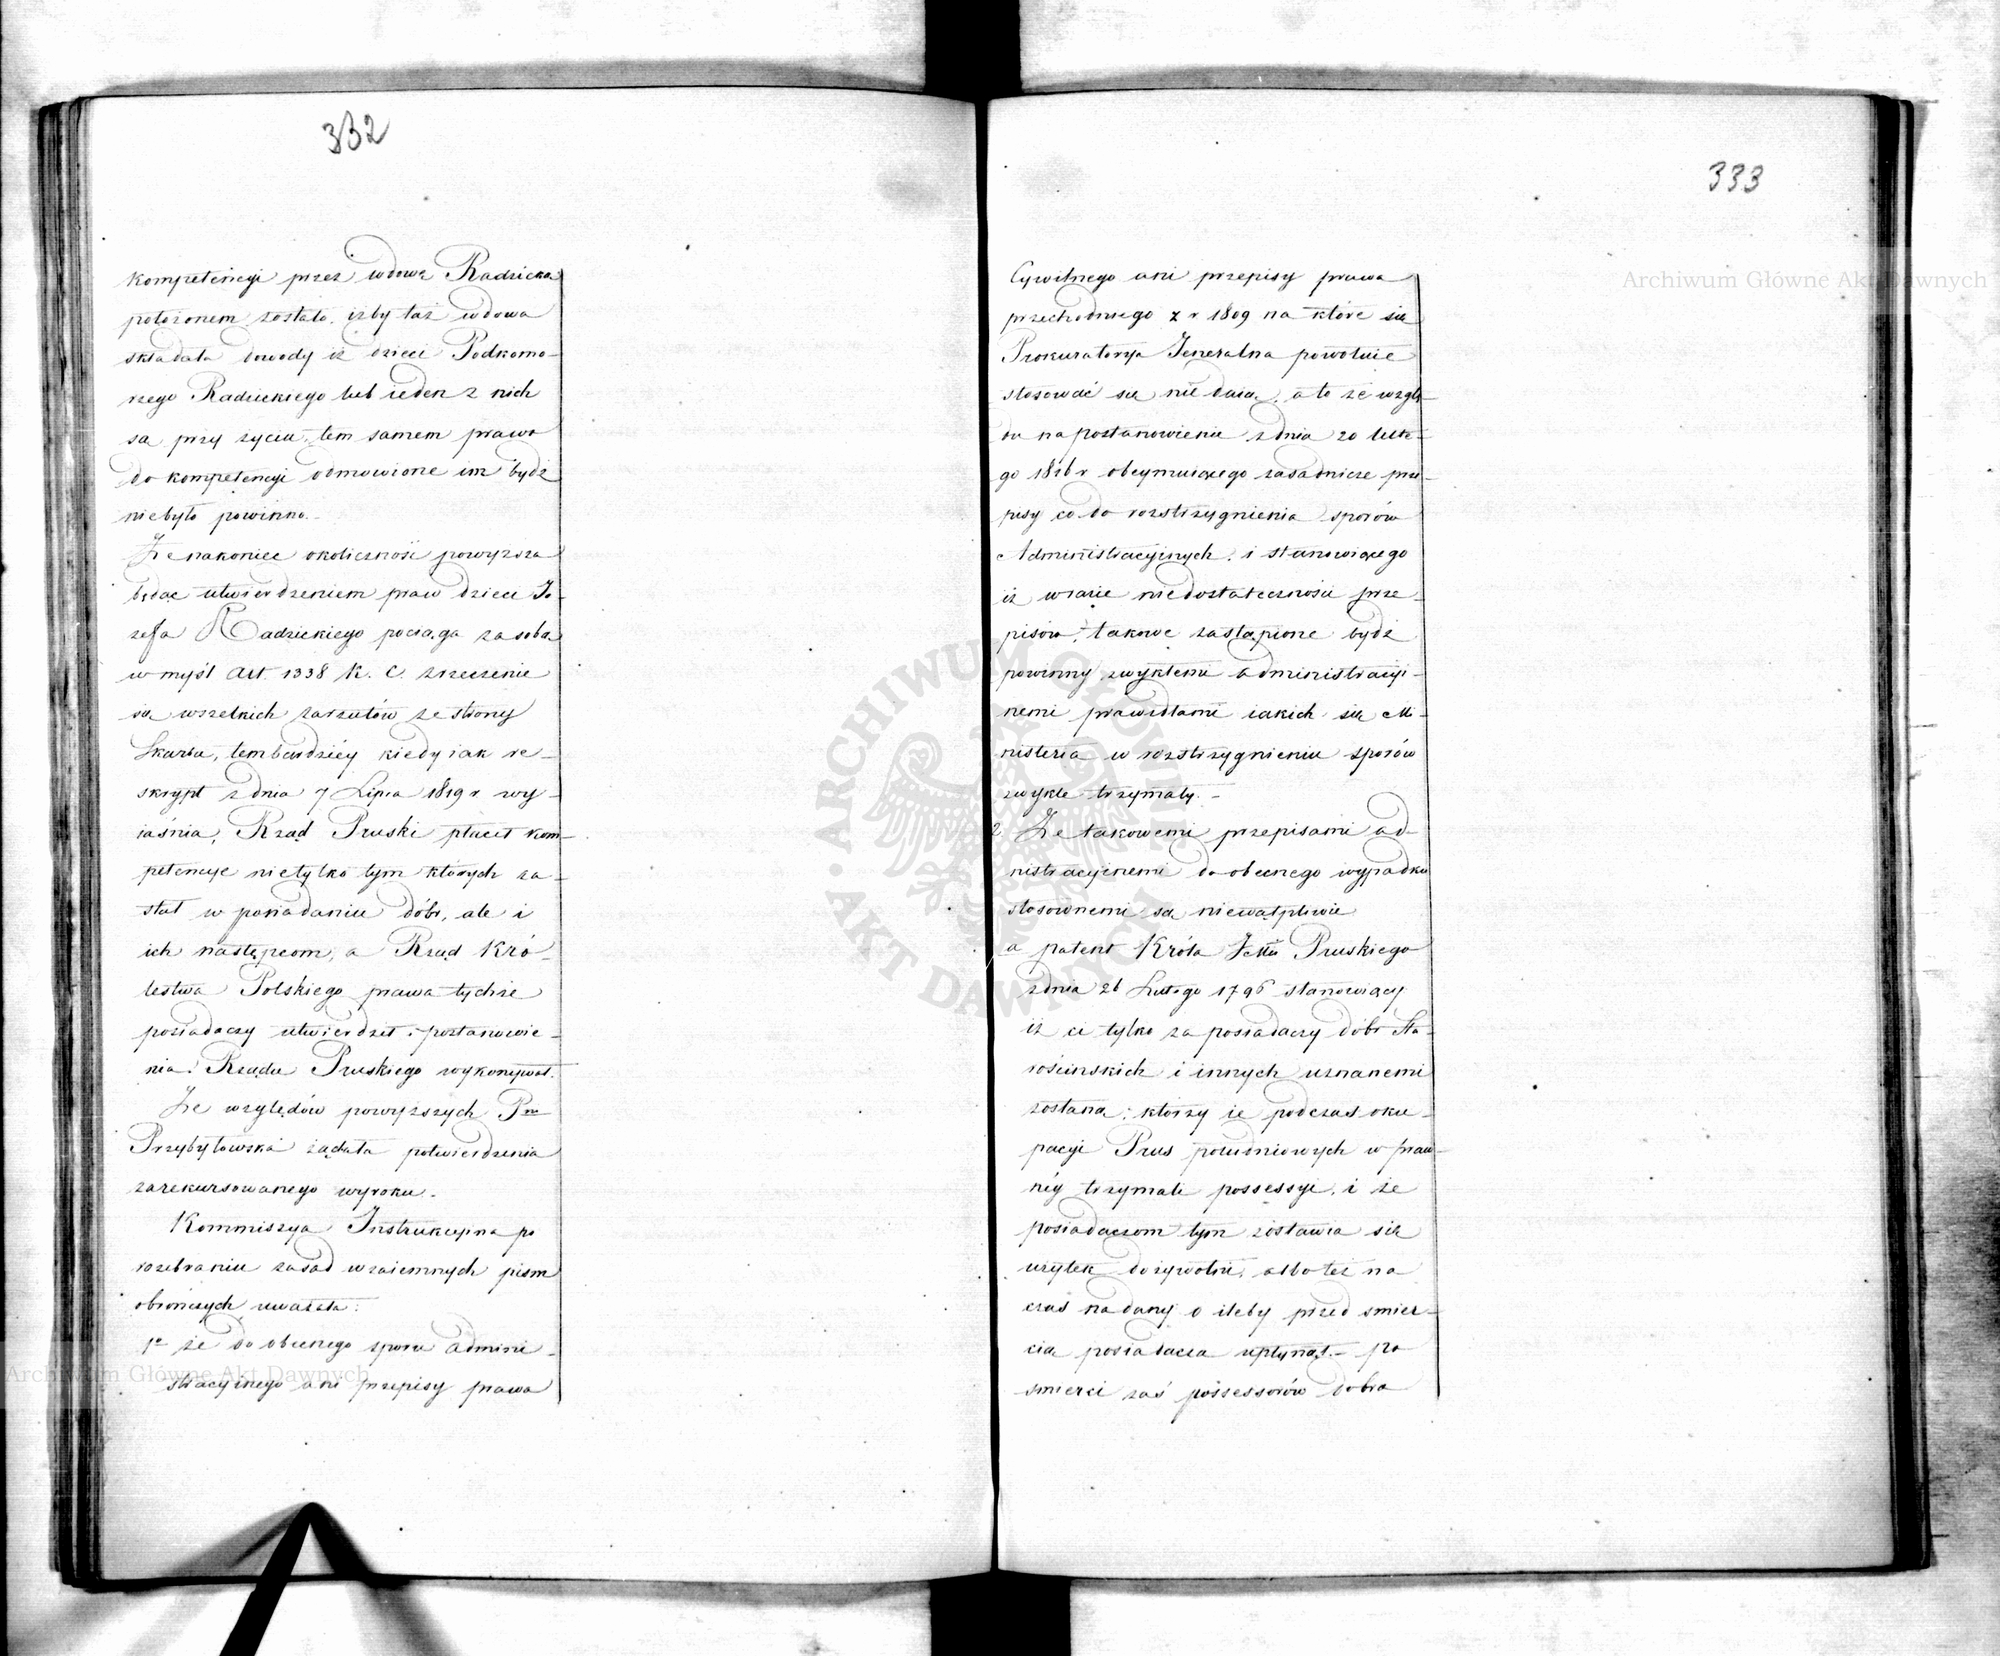 332
kompetencyi przez wdowę Radzicką
położonem zostało, iżby taż wdowa
składała dowody iż dzieci Podkomo-
rzego Radzickiego lub ieden z nich
są przy życiu, tem samem prawo
do kompetencyi odmowione im bydź
niebyło powinno.-
Że nakoniec okoliczność powyższa
będąc utwierdzeniem praw dzieci Jo-
zefa Radzickiego pociąga za sobą
w myśl Art. 1338 K. C. zrzeczenie
się wszelkich zarzutów ze strony
Skarbu, tembardziéy kiedy iak re-
skrypt z dnia 7 Lipca 1819 r wy-
iaśnia, Rząd Pruski płacił kom-
petencye nietylko tym których za-
stał w posiadaniu dóbr, ale i
ich następcom, a Rząd Kró-
lestwa Polskiego prawa tychże
posiadaczy utwierdził i postanowie-
nia Rządu Pruskiego wykonywał.
Ze względów powyższych Pni
Przybyłowska żądała potwierdzenia
zarekursowanego wyroku.
Kommissya Instrukcyjna po
rozebraniu zasad wzaiemnych pism
obrończych uważała:
1e że do obecnego sporu admini-
stracyjnego ani przepisy prawa
333
Cywilnego ani przepisy prawa
przechodniego z r 1809 na które się
Prokuratorya Jeneralna powołuie
stosować się nie daią, a to ze wzglę-
du na postanowienie z dnia 20 Lute-
go 1816 r obeymuiącego zasadnicze prze-
pisy co do rozstrzygnienia sporów
Administracyjnych, i stanowiącego
iż w razie niedostateczności prze-
pisów, takowe zastąpione bydź
powinny zwykłemi administracyj-
nemi prawidłami iakich się Mi-
nisteria w rozstrzygnieniu sporów
zwykle trzymały.-
2 Że takowemi przepisami ad-
nistracyjnemi do obecnego wypadku
stosownemi są niewątpliwie
a patent Króla JMci Pruskiego
z dnia 26 Lutego 1796 stanowiący
iż ci tylko za posiadaczy dóbr Sta-
rościńskich i innych uznanemi
zostaną, którzy ie podczas oku-
pacyi Prus południowych w praw-
néy trzymali possessyi, i że
posiadaczom tym zostawia się
użytek dożywotni, albo też na
czas nadany o ileby przed śmier-
cią posiadacza upłynął.- po
śmierci zaś possessorów dobra
Archiwum Główne Akt Dawnych
Archiwum Główne Akt Dawnych